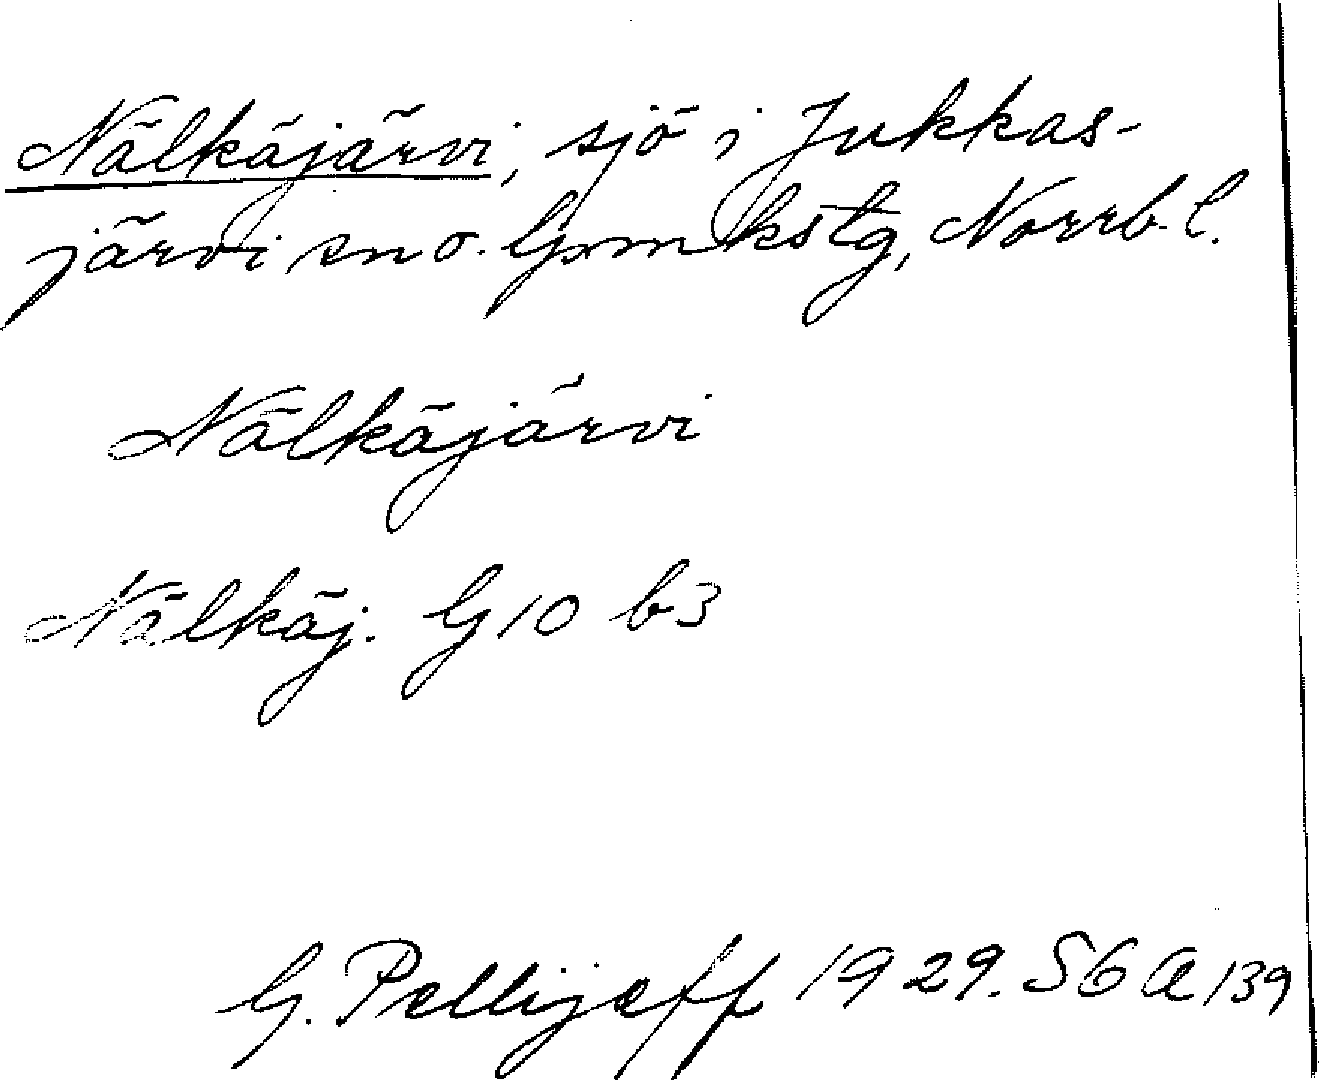 Nälkäjärvi, sjö i Jukkas-
järvi sn o. Gvm kstg, Norrb. l.
Nälkäjärvi
Nälkäj. G 10 b3
G. Pellijeff 1929. S6 a 139